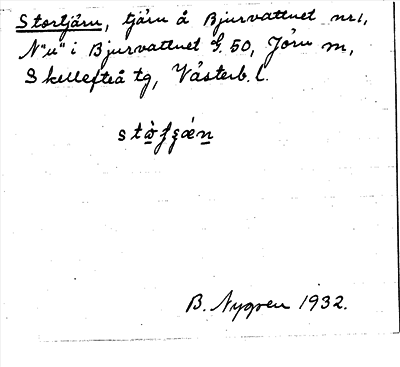 Stortjärn, tjärn å Bjurvattnet nr 1,
N"u" i Bjurvattnet G. 50, Jörn sn,
Skellefteå tg, Västerb. l.
B. Nygren 1932.